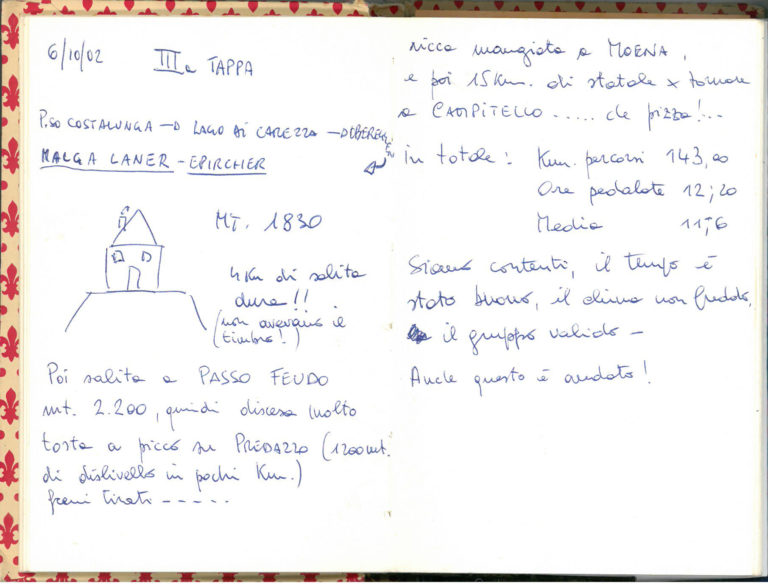 6/10/02 IIIa TAPPA
P.SO COSTALUNGA → LAGO DI CAREZZA →
MALGA LANER - EPIRCHER
MT. 1830
4 Km di salita
dura!!
(non avevano il
timbro!)
Poi salita a PASSO FEUDO
mt. 2.200, quindi discesa molto
tosta a picco su PREDAZZO (1200 mt.
di dislivello in pochi Km.)
freni tirati -----
ricca mangiata a MOENA,
e poi 15 Km. di statale x tornare
a CAMPITELLO ..... che pizza!..
in totale: Km. percorsi 143,00
Ore pedalate 12;20
Media 11,6
Siamo contenti, il tempo è
stato buono, il clima non freddo,
il gruppo valido -
Anche questo è andato!